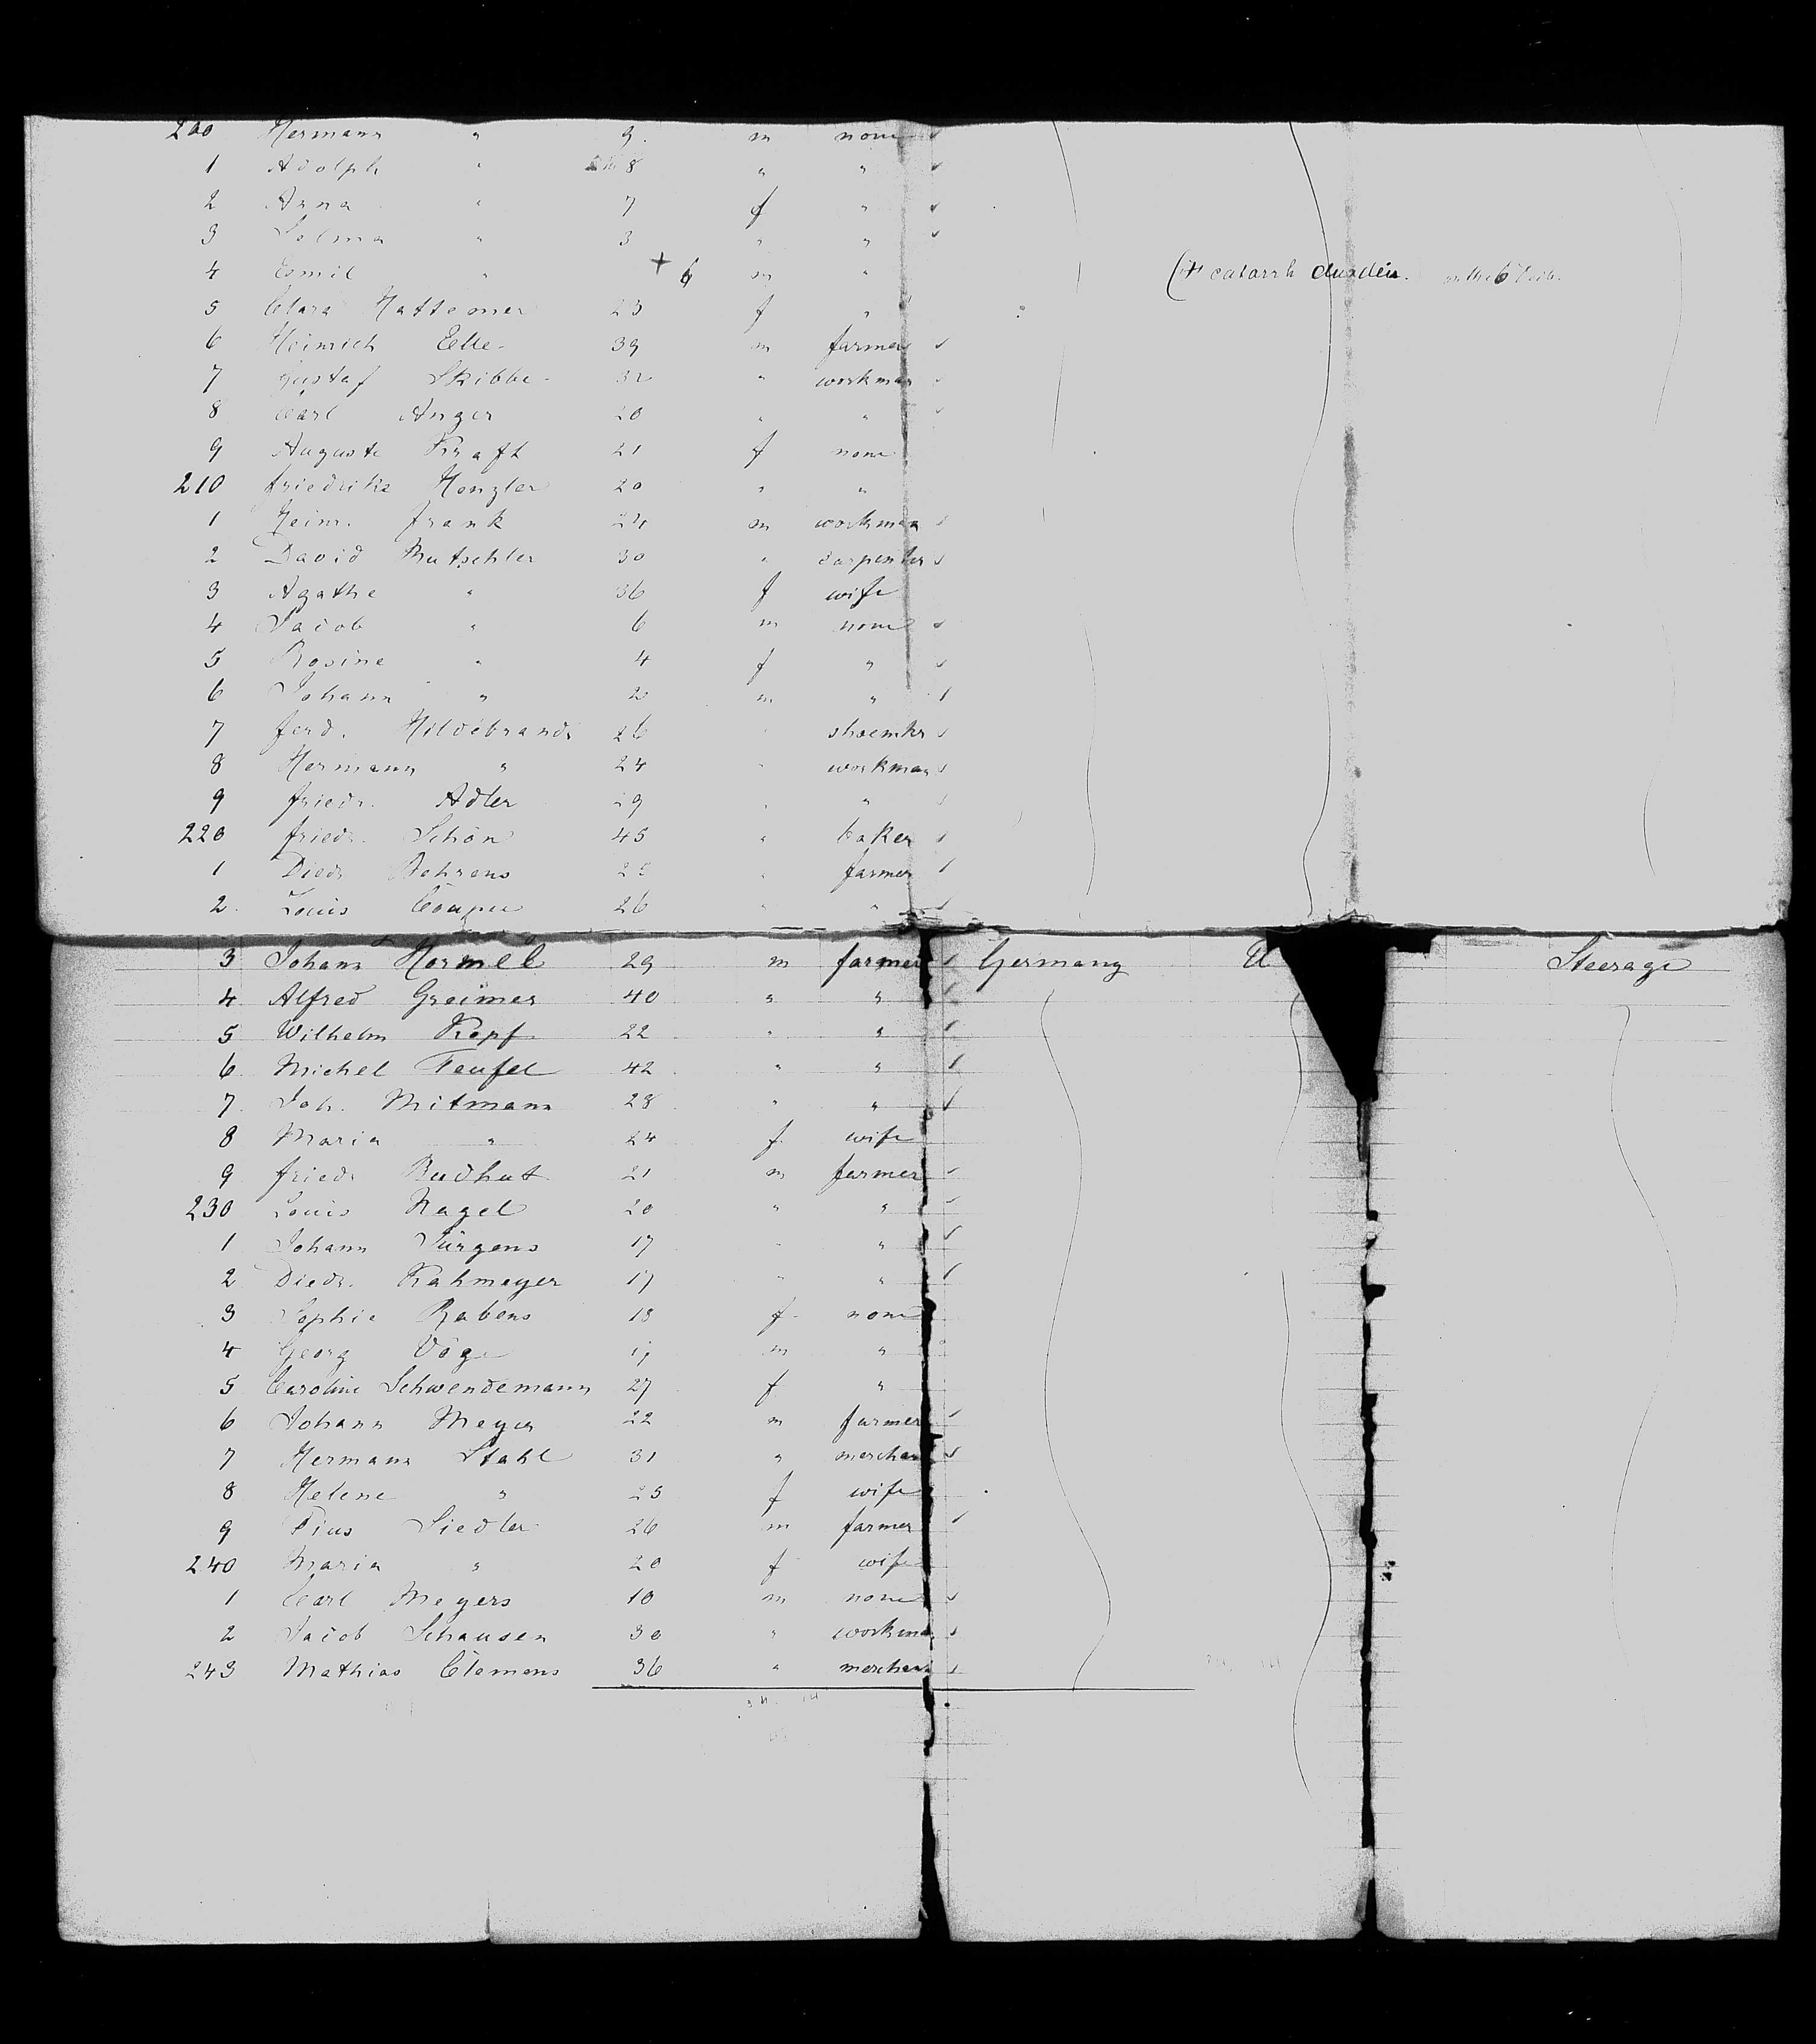 200 Hermann " 9 m none
1 Adolph " 8 " "
2 Anna " 7 f "
3 Selma " 3 " "
4 Emil " + 6 m " (+ catarrh on the 6
5 Clara Hattemer 23 f "
6 Heinrich Eelle 39 m farmer
7 Gustaf Skibbe 32 " workman
8 Carl Anger 20 " "
9 Auguste Kraft 21 f none
210 Friedrike Henzler 20 " "
1 Heinr. Frank 24 m workman
2 David Mutschler 30 " carpenter
3 Agathe " 36 f wife
4 Jacob " 6 m none
5 Rosine " 4 f "
6 Johann " 2 m "
7 Ferd. Hildebrand 26 " shoemkr
8 Hermann " 24 " workman
9 Friedr. Adler 29 " "
220 Friedr. Schön 45 " baker
1 Diedr Behrens 25 " farmer
2 Louis 26 " "
3 Johann Hormel 29 m farmer Germany U Steerage
4 Alfred Greimer 40 " "
5 Wilhelm Kopf 22 " "
6 Michel Teufel 42 " "
7 Joh. Mitmann 28 " "
8 Maria " 24 f wife
9 Friedr Budhut 21 m farmer
230 Louis Nagel 20 " "
1 Johann Jürgens 17 " "
2 Diedr. Kahmeyer 17 " "
3 Sophie Rabens 18 f none
4 Georg Vöge 17 m "
5 Caroline Schwendemann 27 f "
6 Johann Meyer 22 m farmer
7 Hermann Stahl 31 " merchan
8 Helene " 25 f wife
9 Pius Siedler 26 m farmer
240 Maria " 20 f wife
1 Carl Meyers 10 m none
2 Jacob Schausen 30 " workman
243 Mathias Clemens 36 " merchan